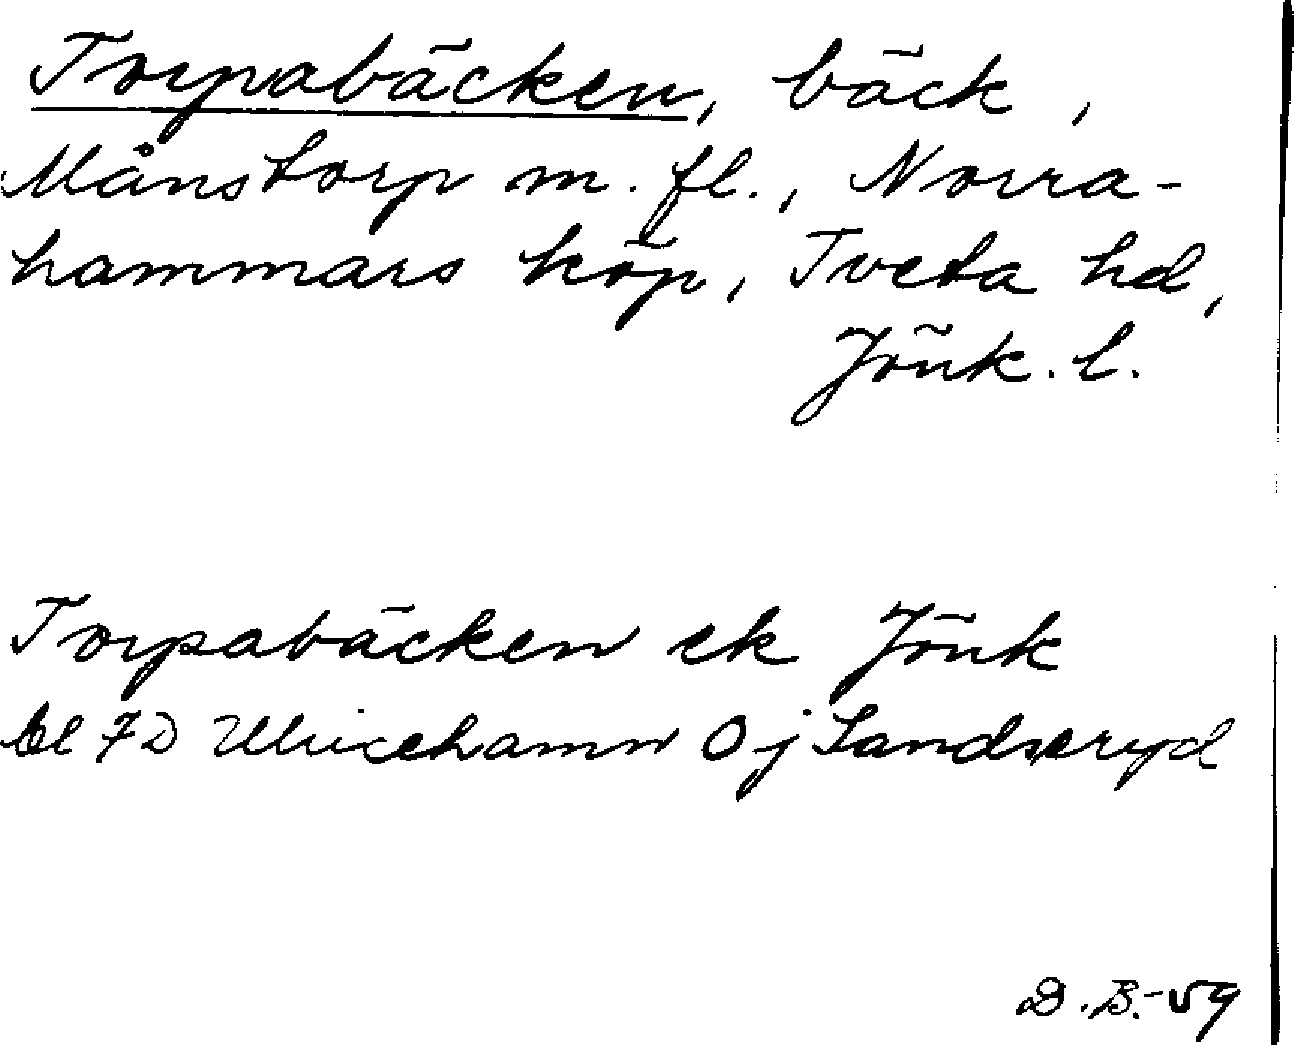 Torpabäcken, bäck,
Månstorp m. fl., Norra-
hammars köp, Tveta hd,
Jönk. l.
Torpabäcken ek Jönk
bl 7D Ulricehamn Oj Sandseryd
D.B.-59